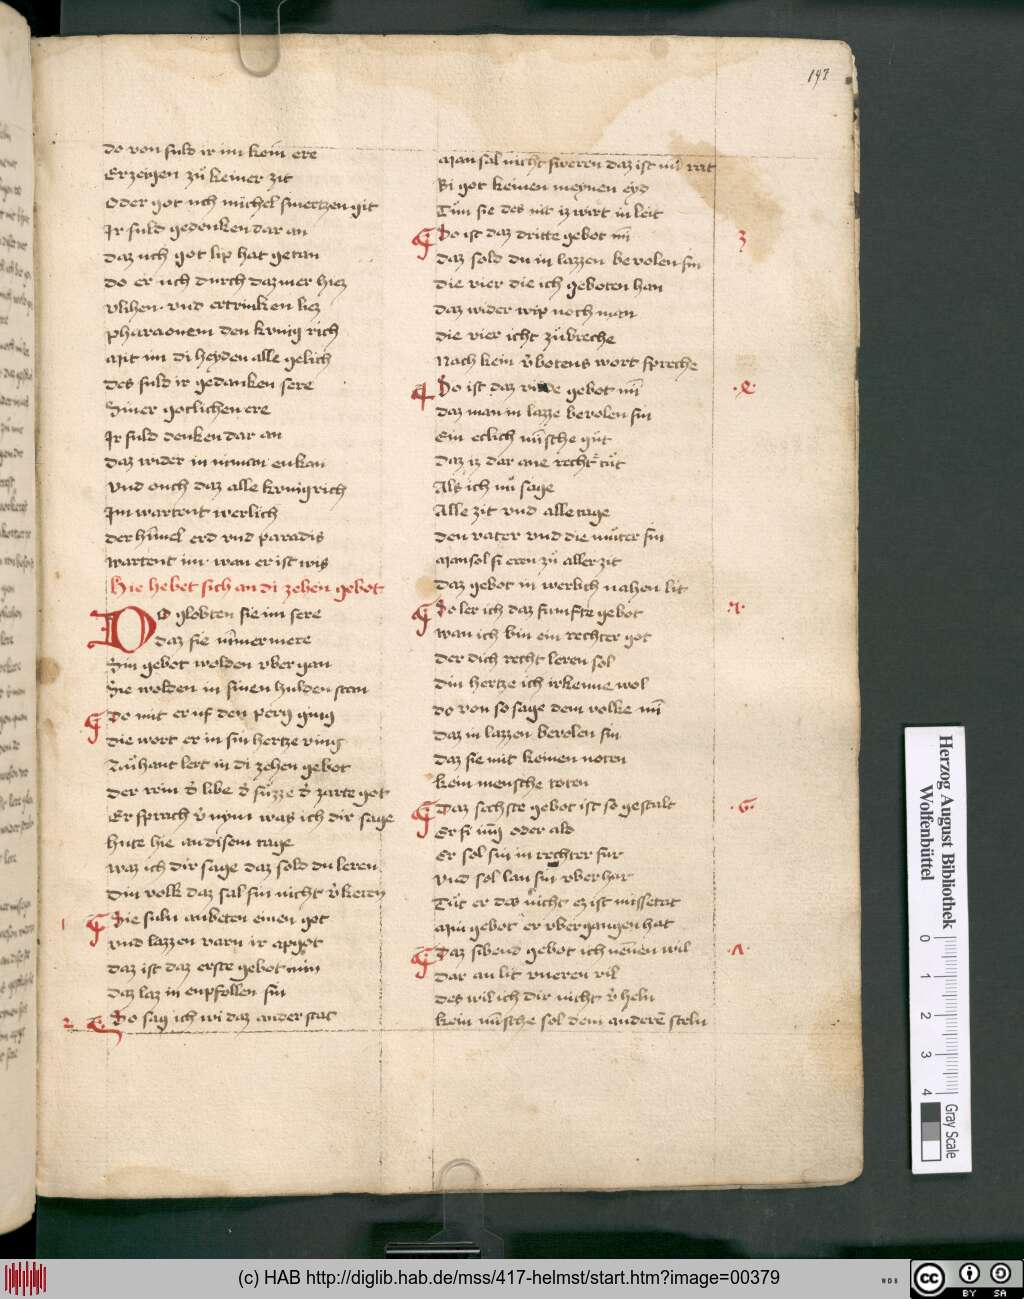 147
do von suld ir im kein ere
Erzeigen zů keiner zit
Oder got uch michel smertzen git
Ir suld gedenken dar an
daz uch got lip hat getan
do er uch durch daz mer hiez
vlihen · vnd ertrinken liez
pharaonem den kvnig rich
Mit im di heyden alle gelich
des suld ir gedanken sere
Siner gotlichen ere
Ir suld denken dar an
daz wider in niman enkan
vnd ouch daz alle kvnigrich
Im wartent werlich
der himel erd vnd paradis
wartent im · wan er ist wis
Hie hebet sich an di zehen gebot
Do globten sie im sere
daz sie nimermere
Sin gebot wolden vbergan
Sie wolden in sinen hulden stan
Do mit er uf den perg ging
die wort er in sin hertze ving
Zůhant lert in di zehen gebot
der rein der libe der sůzze der zarte got
Er sprach vernym was ich dir sage
hute hie an disem tage
waz ich dir sage daz sold du leren
Din volk daz sal sin nicht verkeren
1 Sie suln anbeten einen got
vnd lazzen varn ir apgot
daz ist daz erste gebot min
daz laz in enpfollen sin
2 So sag ich wi daz ander stat
Man sal nicht sweren daz ist min rat
Bi got keinen meynen eyd
Tůn sie des nit iz wirt in leit
Do ist daz dritte gebot min 3
daz sold du in lazzen bevolen sin
die vier die ich geboten han
daz wider wip noch man
die vier icht zůbreche
Nach kein verbotens wort spreche
Do ist daz virde gebot min · 4 ·
daz man in lazze bevolen sin
Ein eclich mensche gůt
daz iz dar ane recht tůt
Als ich nů sage
Alle zit vnd alle tage
den vater vnd die můter sin
Man sol si eren zů aller zit
daz gebot in werlich nahen lit
Do ler ich daz funfte gebot · 5 ·
wan ich bin ein rechter got
der dich recht leren sol
din hertze ich irkenne wol
do von so sage dem volke min
daz in lazzen bevolen sin
daz sie mit keinen noten
kein mensche toten
Daz sechste gebot ist so gestalt · 6 ·
Er si iung oder ald
Er sol sin in rechter fur
vnd sol lan sin vberhur
Tůt er des nicht ez ist missetat
Min gebot er vbergangen hat
Daz sibend gebot ich nennen wil · 7 ·
dar an lit vneren vil
des wil ich dir nicht verheln
kein mensche sol dem anderen steln
Herzog August Bibliothek
Wolfenbüttel
0 1 2 3 4
Gray Scale
(c) HAB http://diglib.hab.de/mss/417-helmst/start.htm?image=00379
WDB
cc BY SA